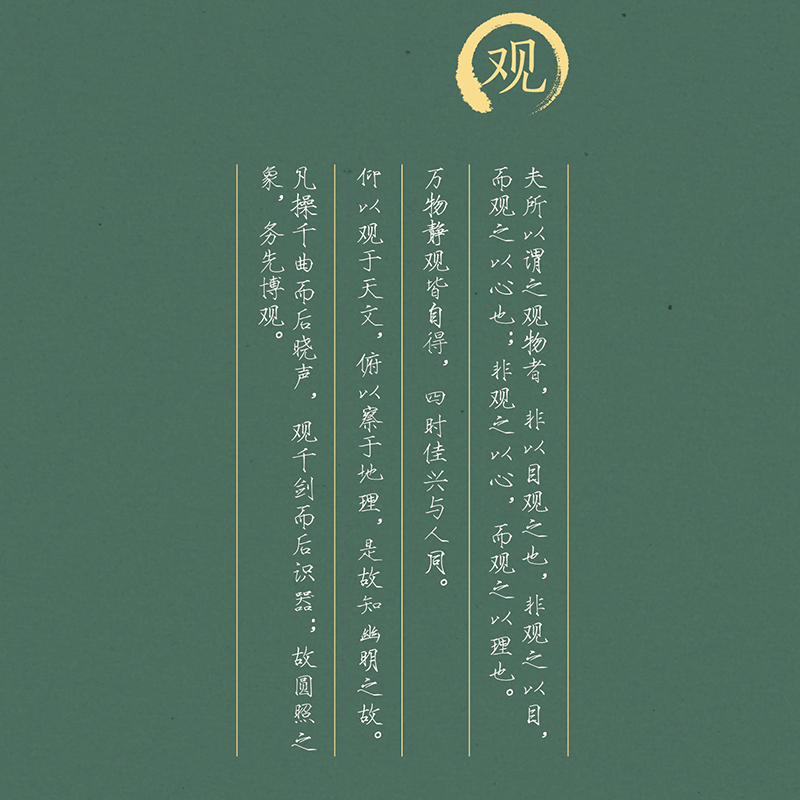 观
夫所以谓之观物者，非以目观之也，非观之以目，
而观之以心也；非观之以心，而观之以理也。
万物静观皆自得，四时佳兴与人同。
仰以观于天文，俯以察于地理，是故知幽明之故。
凡操千曲而后晓声，观千剑而后识器；故圆照之
象，务先博观。